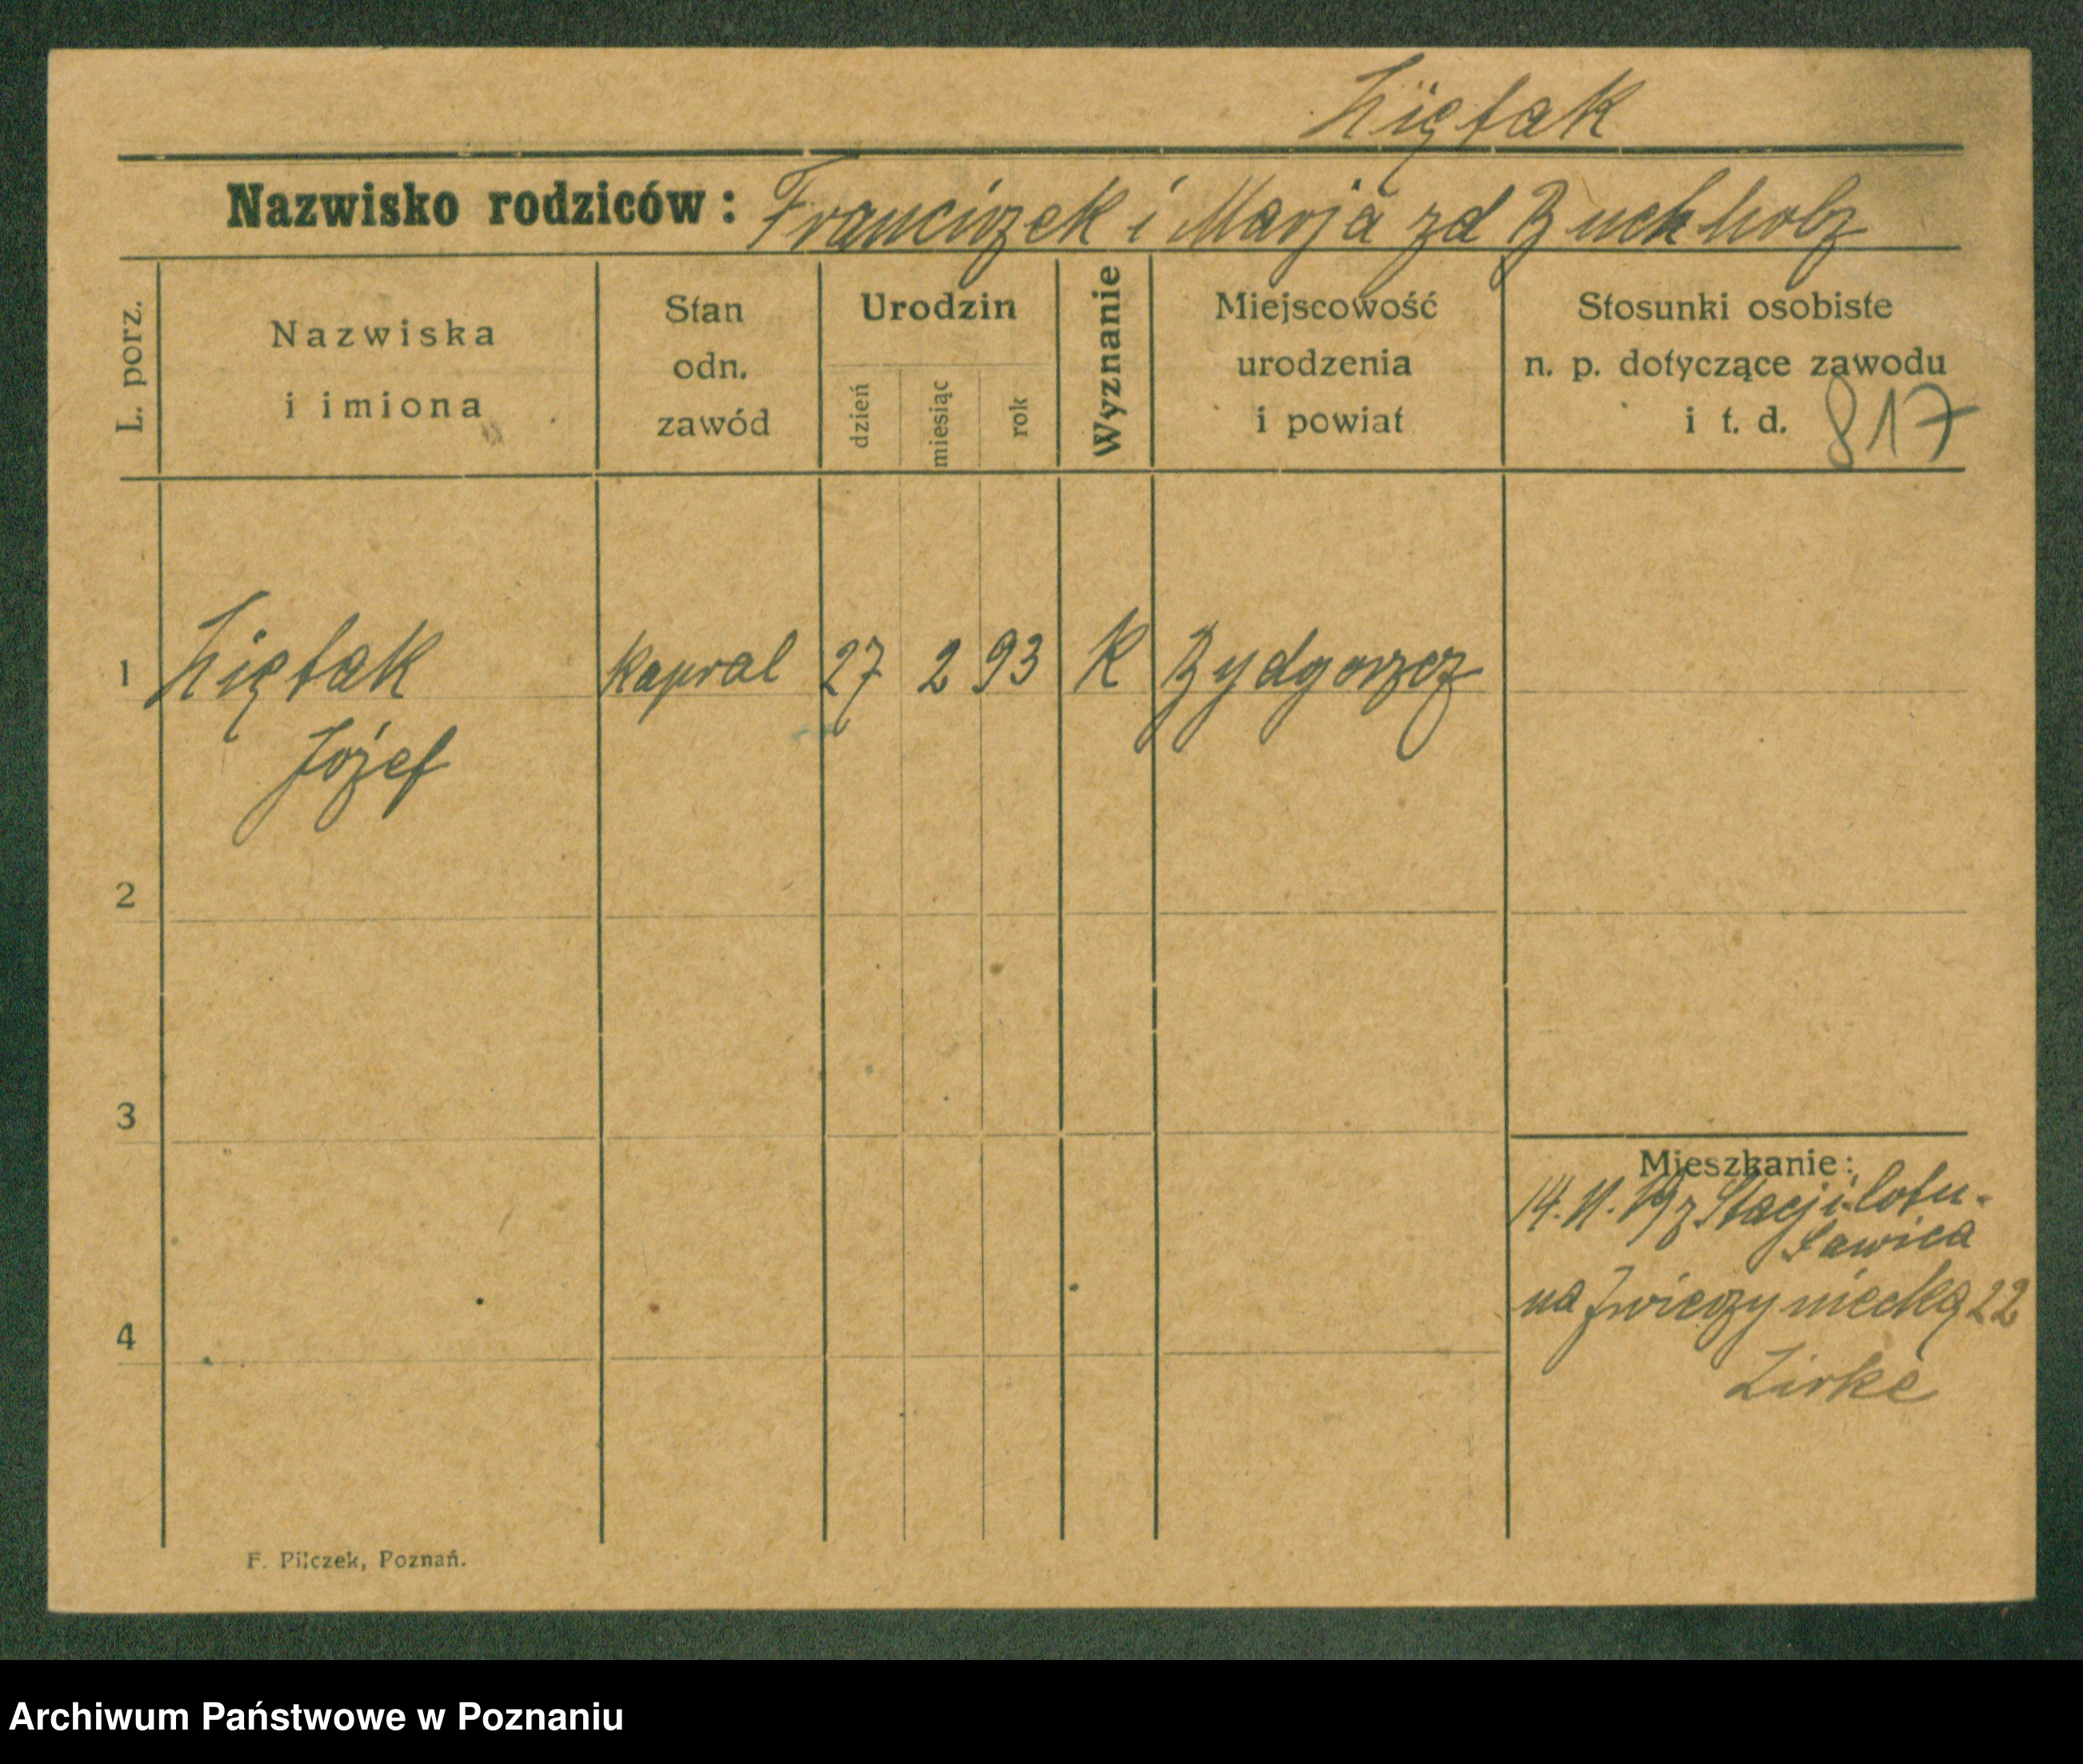 Ziętak
Nazwisko rodziców: Franciszek i Marja zd Buchholz
L. porz.
Nazwiska
i imiona
Stan
odn.
zawód
Urodzin
dzień
miesiąc
rok
Wyznanie
Miejscowość
urodzenia
i powiat
Stosunki osobiste
n. p. dotyczące zawodu
i t. d. 817
1 Ziętak kapral 27 2 93 K Bydgoszcz
Józef
2
3
Mieszkanie:
14. 11. 19 z Stacji lotn.
Ławica
na Zwierzyniecką 22
4
Zirke
F. Pilczek, Poznań.
Archiwum Państwowe w Poznaniu